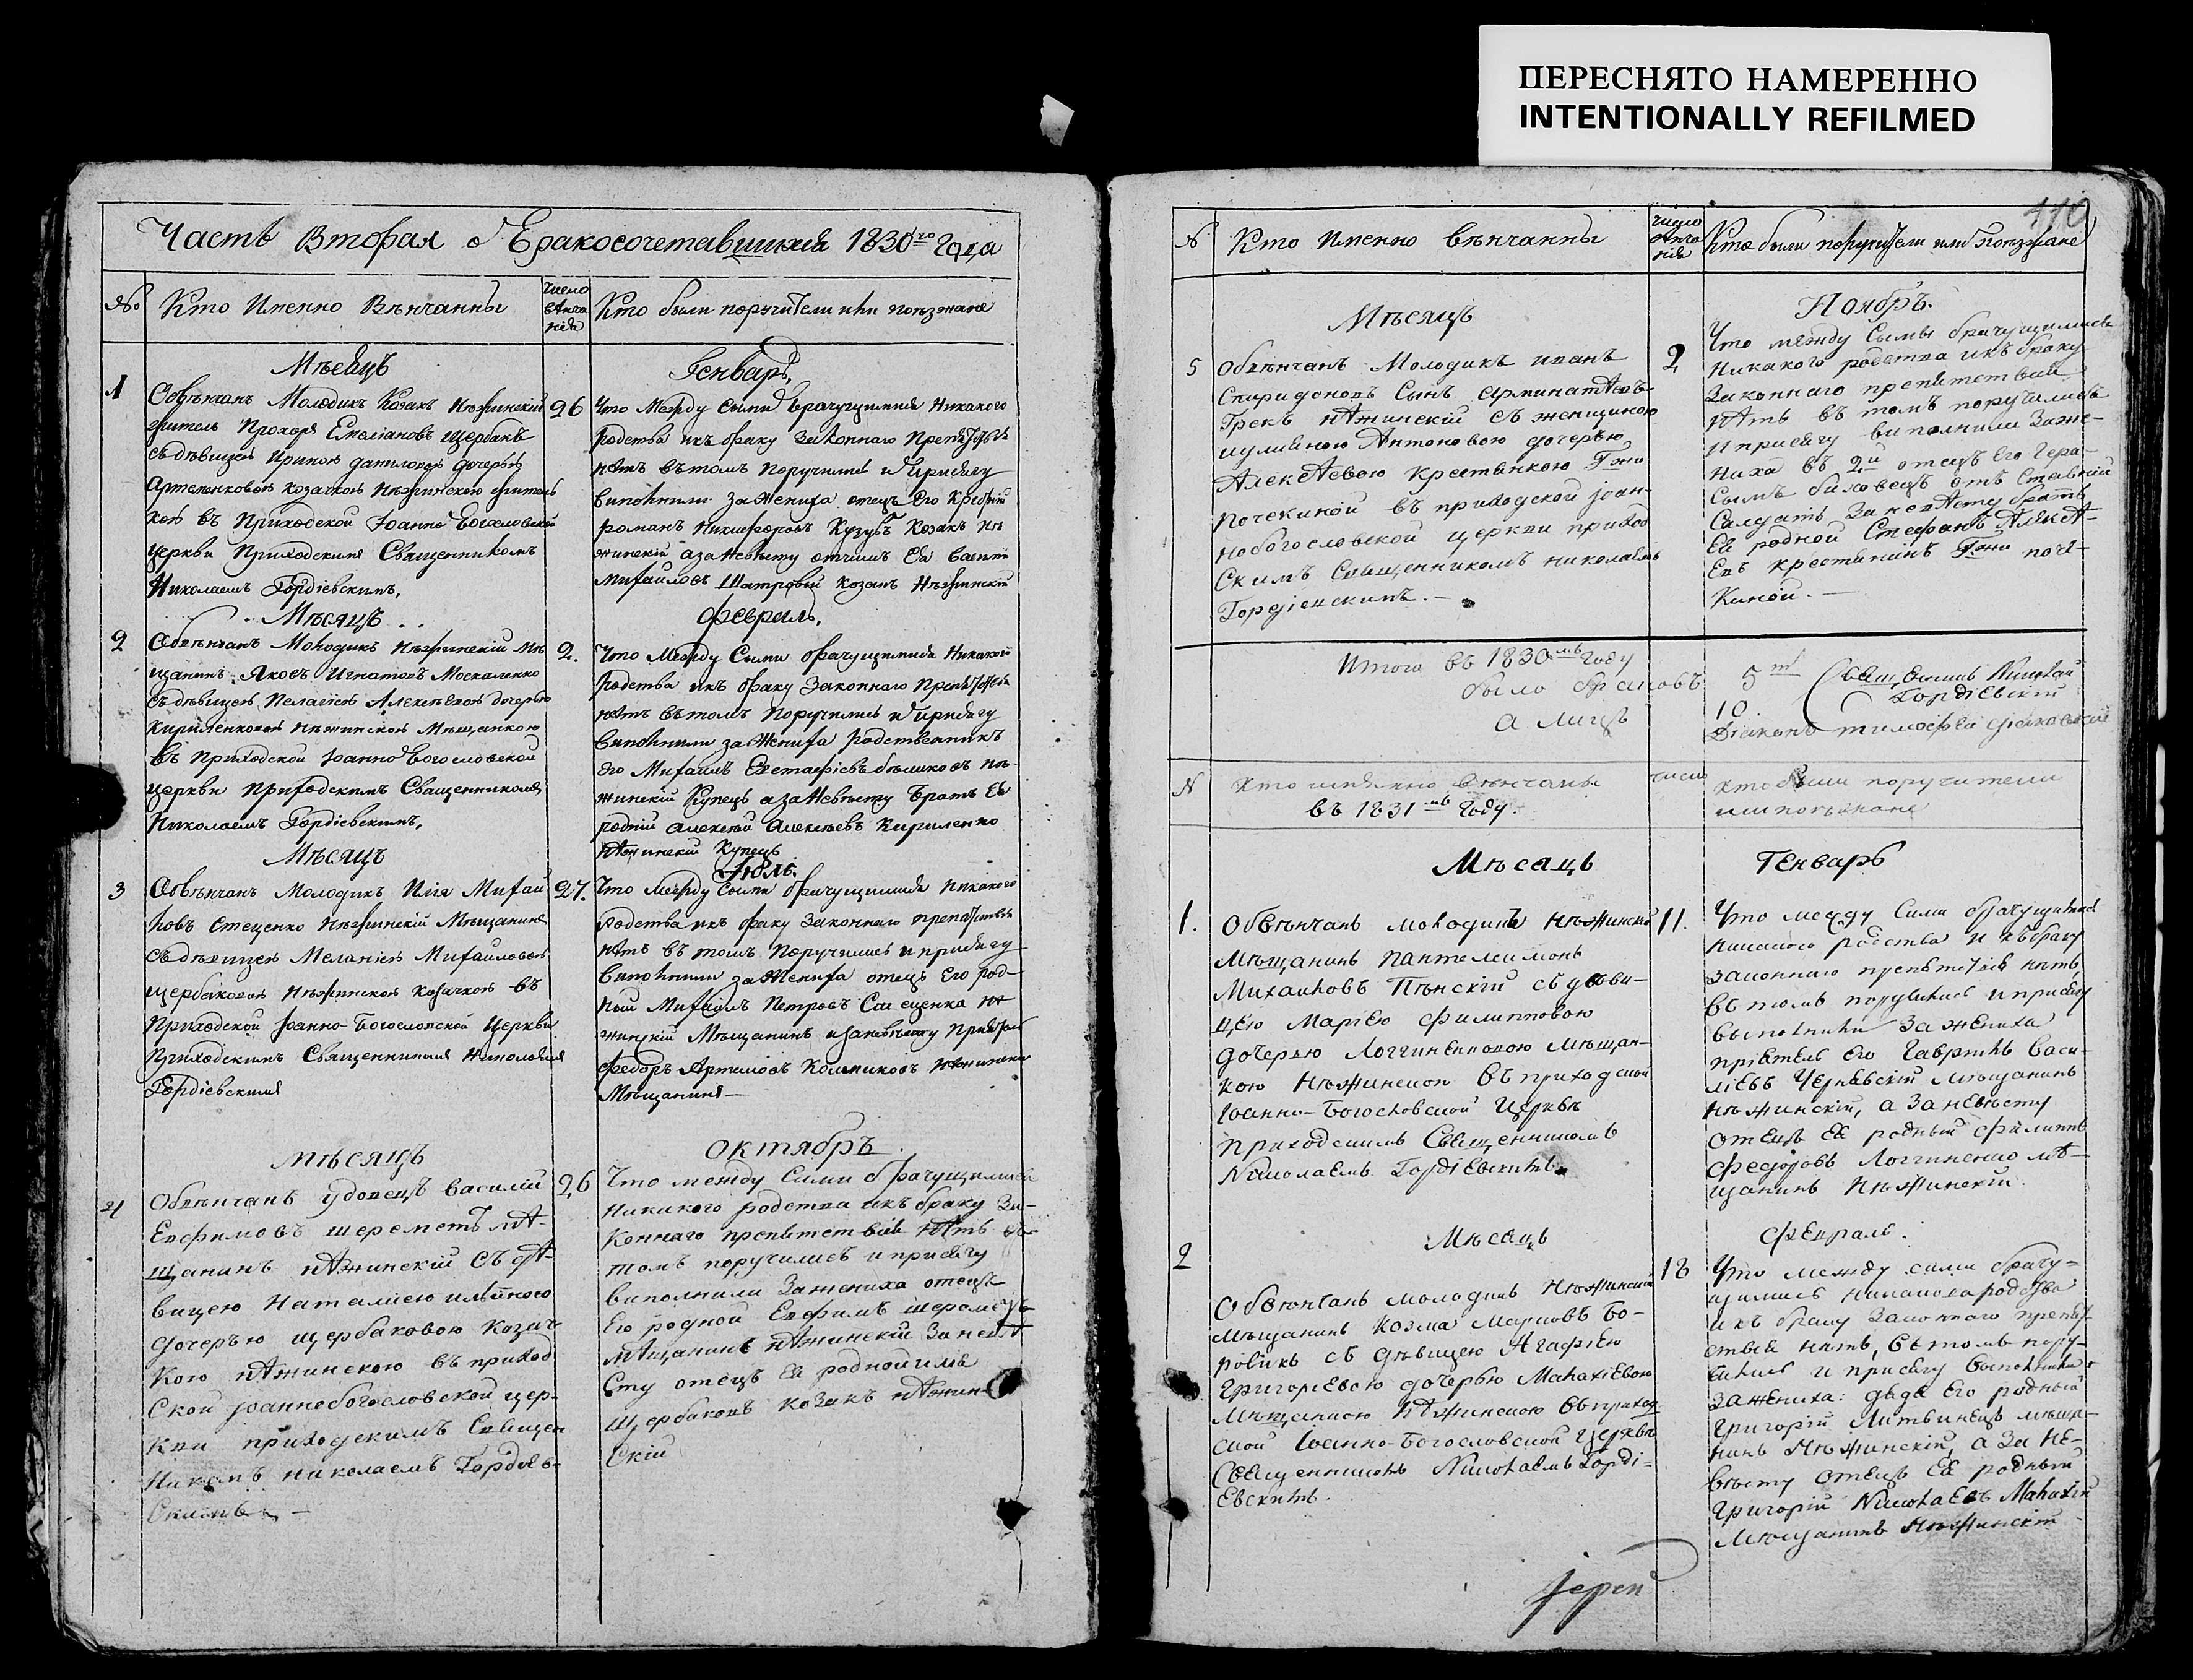 ПЕРЕСНЯТО НАМЕРЕННО
INTENTIONALLY REFILMED
Часть Вторая о Бракосочетавшихся 1830го Года
№ Кто Именно Венчанны Число венчания Кто были поручители или поезжане
Мѣсяцъ Генварь
1
Обвѣнчанъ Молодикъ Козакъ Нѣжинский
житель Прохоръ Емелiановъ Щербакъ
съ дѣвицею Ириною Даниловою дочерью
Артеменковою козачкою Нѣжинскою житель
кою въ Приходской Iоанно Богословской
Церкви Приходскимъ Священникомъ
Николаемъ Гордiевскимъ,
26
Что Между сими брачущимися Никакого
родства и къ браку Законнаго Препятствiя
нѣтъ вътомъ Поручились и Присягу
виполнили За Жениха отецъ Его Крестнiй
романъ Никифоровъ Кузубъ Козакъ Нѣ
жинскiй а за Невѣсту отчимъ Ея Василiй
Михайловъ Шатровый Козакъ Нѣжинскiй
Мѣсяцъ Февраль.
2
Обвѣнчанъ Молодикъ Нѣжинскiй мѣ
щанинъ Яковъ Игнатовъ Москаленко
съ дѣвицею Пелагiею Алексѣевою дочерью
Кириленковою Нѣжинскою Мѣщанкою
въ Приходской Iоанно Богословской
церкви Приходскимъ Священникомъ
Николаемъ Гордiевскимъ,
2.
Что Между Сими брачущимися Никакого
родства и къ браку Законнаго Препятствiя
нѣтъ вътомъ Поручились и Присягу
виполнили за Жениха родственникъ
Его Михаилъ Евстафiевъ нѣ-
жинскiй Купецъ а за Невѣсту Братъ Ея
роднiй Алексѣй Алексѣевъ Кириленко
нѣжинскiй Купецъ
Мѣсяцъ Iюль.
3
Обвѣнчанъ Молодикъ Илiя Михай
ловъ Стеценко Нѣжинскiй Мѣщанинъ
съ дѣвицею Меланiею Михайловою
щербаковою Нѣжинскою козачкою въ
Приходской Iоанно-Богословской Церкви
Приходскимъ Священникомъ Николаемъ
Гордiевскимъ
27.
Что Между Сими брачущимися Никакого
родства и къ браку Законнаго препятствiя
нѣтъ въ томъ Поручились и присягу
виполнили за Жениха отецъ Его род-
ный Михаилъ Петровъ Стеценко нѣ
жинскiй Мѣщанинъ а за невѣсту Прiятель
Федоръ Артемовъ нѣжинскiй
Мѣщанинъ—
Мѣсяцъ Октябръ
4
Обвѣнчанъ удовецъ Василiй
Евфимовъ шереметъ мѣ-
щанинъ нѣжинскiй съ дѣ-
вицею Наталiею илiиною
дочерью щербаковою козач
кою нѣжинскою въ приход
ской Iоаннобогословской цер-
кви приходскимъ Священ
никомъ николаемъ Гордiев-
скимъ —
26
Что между Сими брачущимися
никакого родства и къ браку За-
коннаго препятствiя нѣтъ въ
томъ поручились и присягу
виполнили За жениха отецъ
Его родной Евфимъ шереметъ
мѣщанинъ нѣжинскiй За невѣ
сту отецъ Ея родной илiя
щербаковъ козакъ нѣжин-
скiй
110
№ Кто Именно вѣнчанны Число вѣнчания Кто были поручители или поѣзжане
Мѣсяцъ Ноябръ.
5
Обвѣнчанъ Молодикъ иванъ
Спиридоновъ Сынъ
Грекъ нѣжинскiй съ женщиною
иулиꙗною Антоновою дочерью
Алексѣевою крестянкою Гжи
Почекиной въ приходской Iоан-
нобогословской церкви приход
скимъ Священникомъ николаемъ
Гордiевскимъ. —
2
Что между Сими брачущимися
никакого родства и къ браку
Законнаго препятствiя
нѣтъ въ томъ поручились
и присягу виполнили За же-
ниха въ 2й отецъ Его Гера-
симъ биховецъ отъ Ставкий
Салдатъ За невѣсту братъ
Ея родной Стефанъ Алексѣ-
евъ крестянинъ Гжи поче-
киной. —
Итого въ 1830мъ Году
было браковъ 5ть
а лицъ 10
Священникъ Николай
Гордiевскiй
Дiаконъ тимофей
№ кто именно вѣнчаны число кто были поручители
въ 1831мъ Году. или поѣзжане
Мѣсацъ Генварь
1.
Обвѣнчанъ молодикъ Нѣжинскiй
мѣщанинъ Пантелеимонъ
Михаиловъ Пѣнскiй съ дѣви-
цею Марiею Филипповою
дочерью Логгиненковою мѣщан-
кою Нѣжинскою въ приходской
Iоанно-Богословской Церквѣ
приходскимъ Священникомъ
Николаемъ Гордiевскимъ.
11.
Что между Сими брачущимися
никакого родства и къ браку
законнаго препятствiя нѣтъ,
въ томъ поручились и присягу
выполнили За жениха
прiятель его Гаврiилъ Васи-
лiевъ Чернявскiй мѣщанинъ
нѣжинскiй, а За невѣсту
отецъ Ея родный Филиппъ
Федоровъ Логгиненко мѣ-
щанинъ Нѣжинскiй.
Мѣсацъ Февраль.
2
Обвѣнчанъ молодикъ Нѣжинскiй
мѣщанинъ Козма Марковъ Бо-
ровикъ съ дѣвицею Агафiею
Григорiевою дочерью Малахiевою
мѣщанкою Нѣжинскою въ приход
ской Iоанно-Богословской Церквѣ
Священникомъ Николаемъ Гордi-
евскимъ.
18
Что между сими брачу-
щимись никакого родства
и къ браку Законнаго препят
ствiя нѣтъ, въ томъ пору-
чились и присягу выполнили
За жениха: дядя Его родный
Григорiй Литвинецъ мѣща-
нинъ Нѣжинскiй, а За не-
вѣсту отецъ Ея родный
Григорiй Николаевъ Малахiй
мѣщанинъ Нѣжинскiй
Iерей